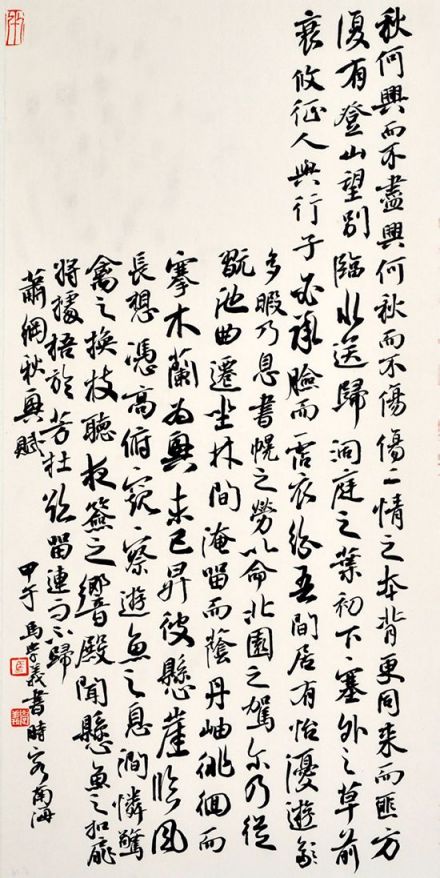 秋何興而不盡興何秋而不傷傷二情之本背更同来而匪方
復有登山望別臨水送歸洞庭之葉初下塞外之草前
衰攸征人與行子必承瞼而霑衣紛吾間居有怡優遊
多暇乃息書幌之勞以命北園之駕尔乃從
翫池曲遷坐林間淹留而蔭丹岫徘徊而
搴木蘭為興未已昇彼懸崖臨風
長想憑高俯窺察遊魚之息澗憐驚
禽之換枝聽夜籤之響殿聞懸魚之扣扉
將據梧於芳杜欲留連而不歸
蕭綱秋興賦
甲午馬学義書時客南海